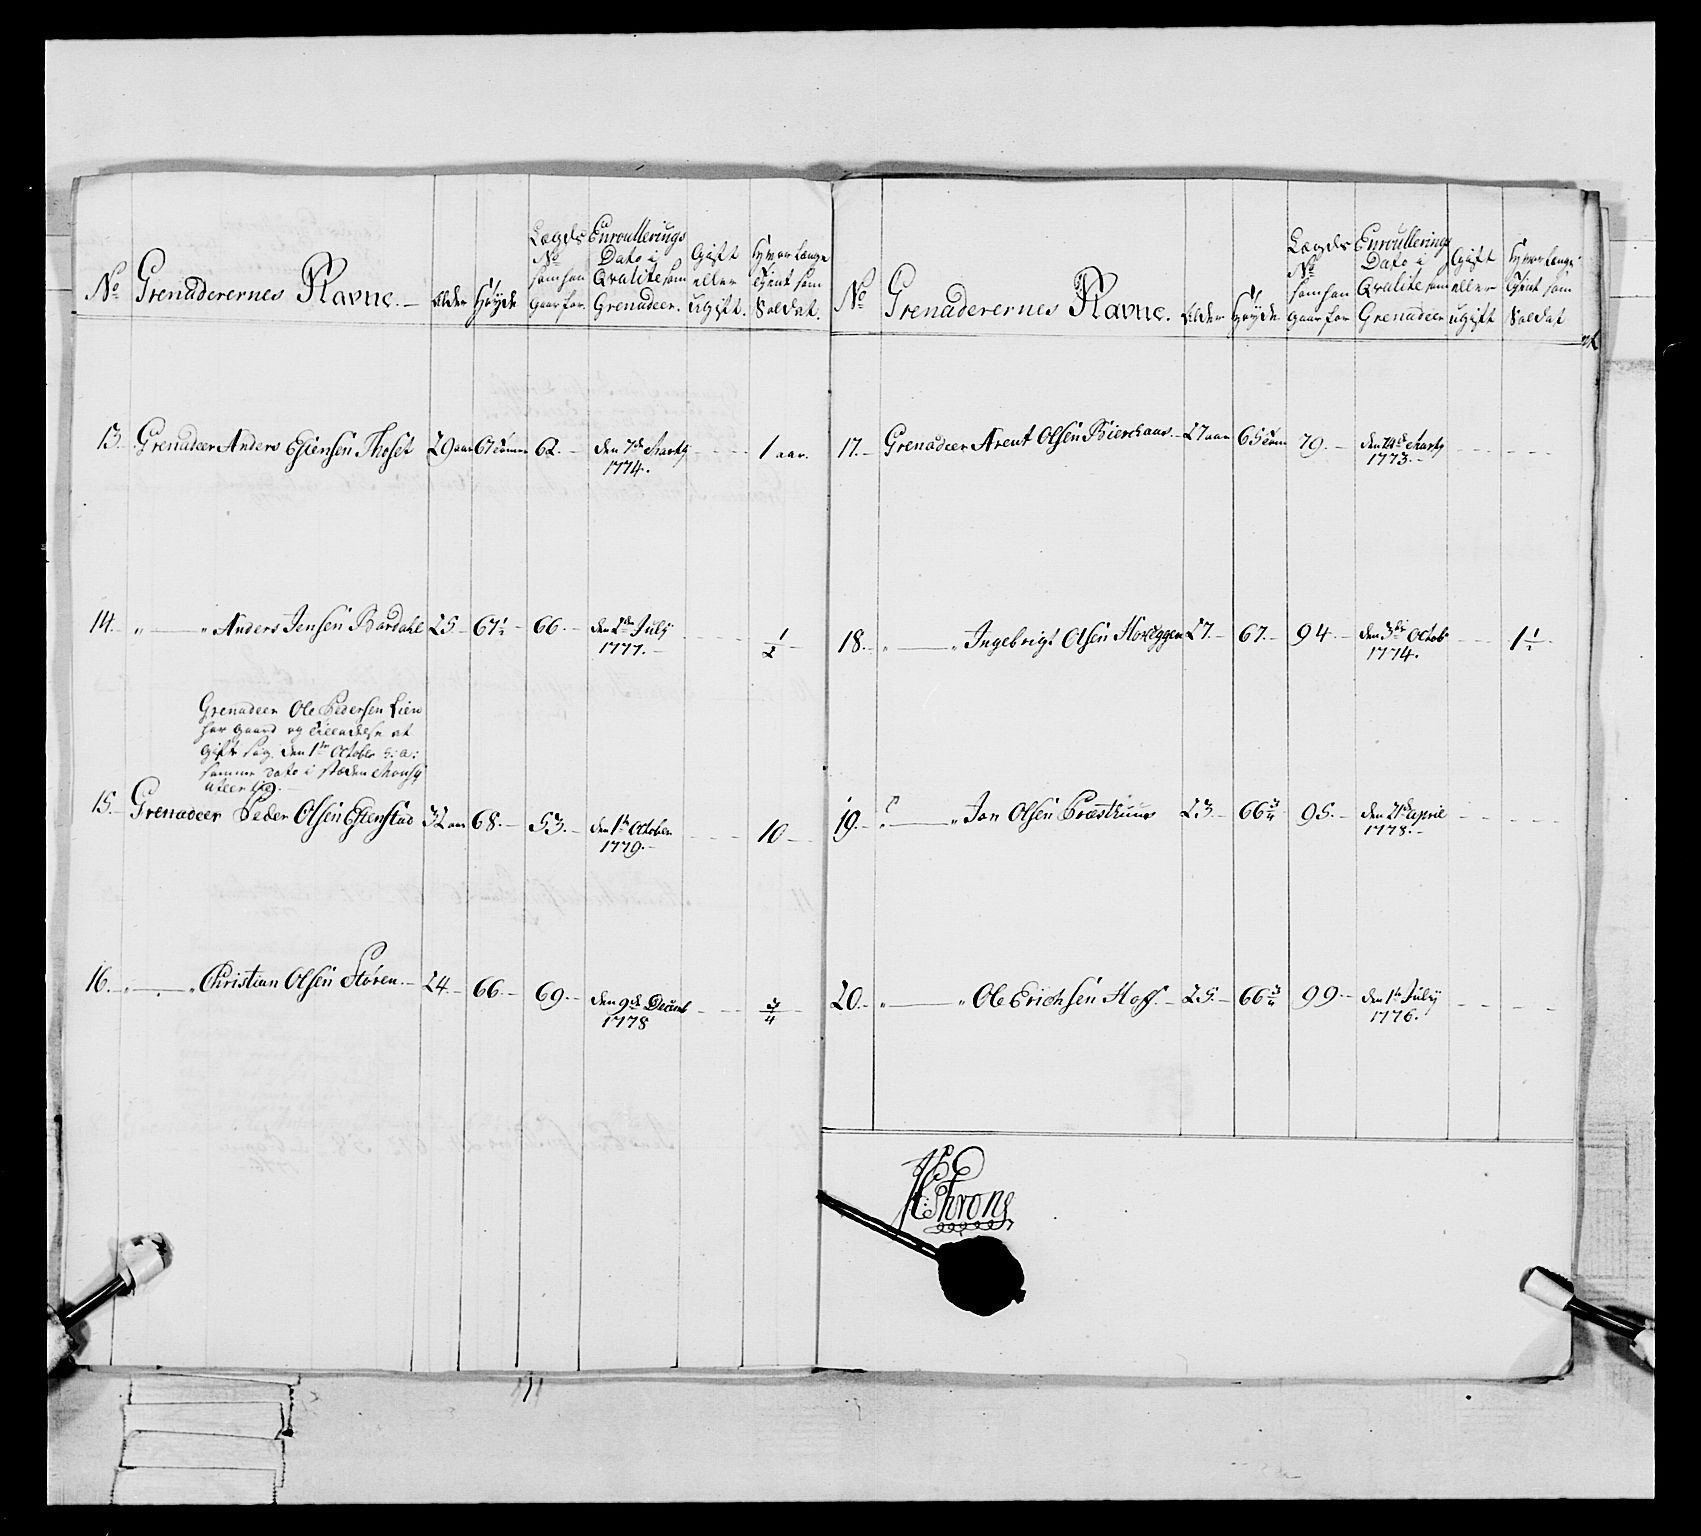 No Grenaderernes Navne. Alder Høyde Lægds No som han gaar for. Enroullerings Dato i Qvalite som Grenadeer. Gift eller ugift. Hvor længe tient som Soldat.
13. Grenadeer Anders Estensen Thoset 29 aar 67 tom 62. den 7de Marty 1 aar.
1774.
14. " — " Anders Jensen Bardahl 25 67½ 66. den 2den July ½
1777.
Grenadeer Ole Pedersen Lien
har gaard og tilladelse at
gifte sig den 1ste October
samme dato i stæden
15. Grenadeer Peder Olsen Estenstad 32 aar 68. 53. den 1ste October 10
1779.
16. " — " Christian Olsen Støren 24 66 69. den 9de Decemb ¾
1778
No Grenaderernes Navne. Alder Høyde Lægds No som han gaar for Enroullerings Dato i Qvalite som Grenadeer Gift eller ugift Hvor længe tient som Soldat
17. Grenadeer Arent Olsen 27 aar 65 tom 79. den 14de Marty
1773.
18. " — " Ingebrigt Olsen 27. 67. 94. den 3die Octob 1½
1774.
19. " — " Jon Olsen 23. 66¾ 95. den 21de April
1778.
20. " — " Ole Erichsen Hoff 25. 66¾ 99. den 1ste July
1776.